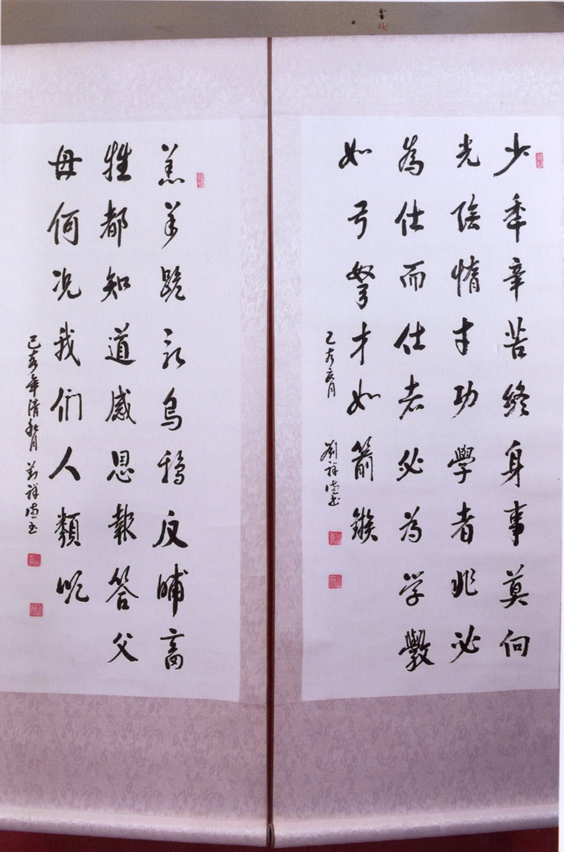 少秊辛苦終身事莫向
光陰惰寸功學者非必
為仕而仕者必為学斆
如弓弩才如箭鏃
己亥夏月 劉祥德书
羔羊跪乳烏鴉反哺畜
牲都知道感恩報答父
母何况我们人類呢
己亥年清秋月 刘祥德书